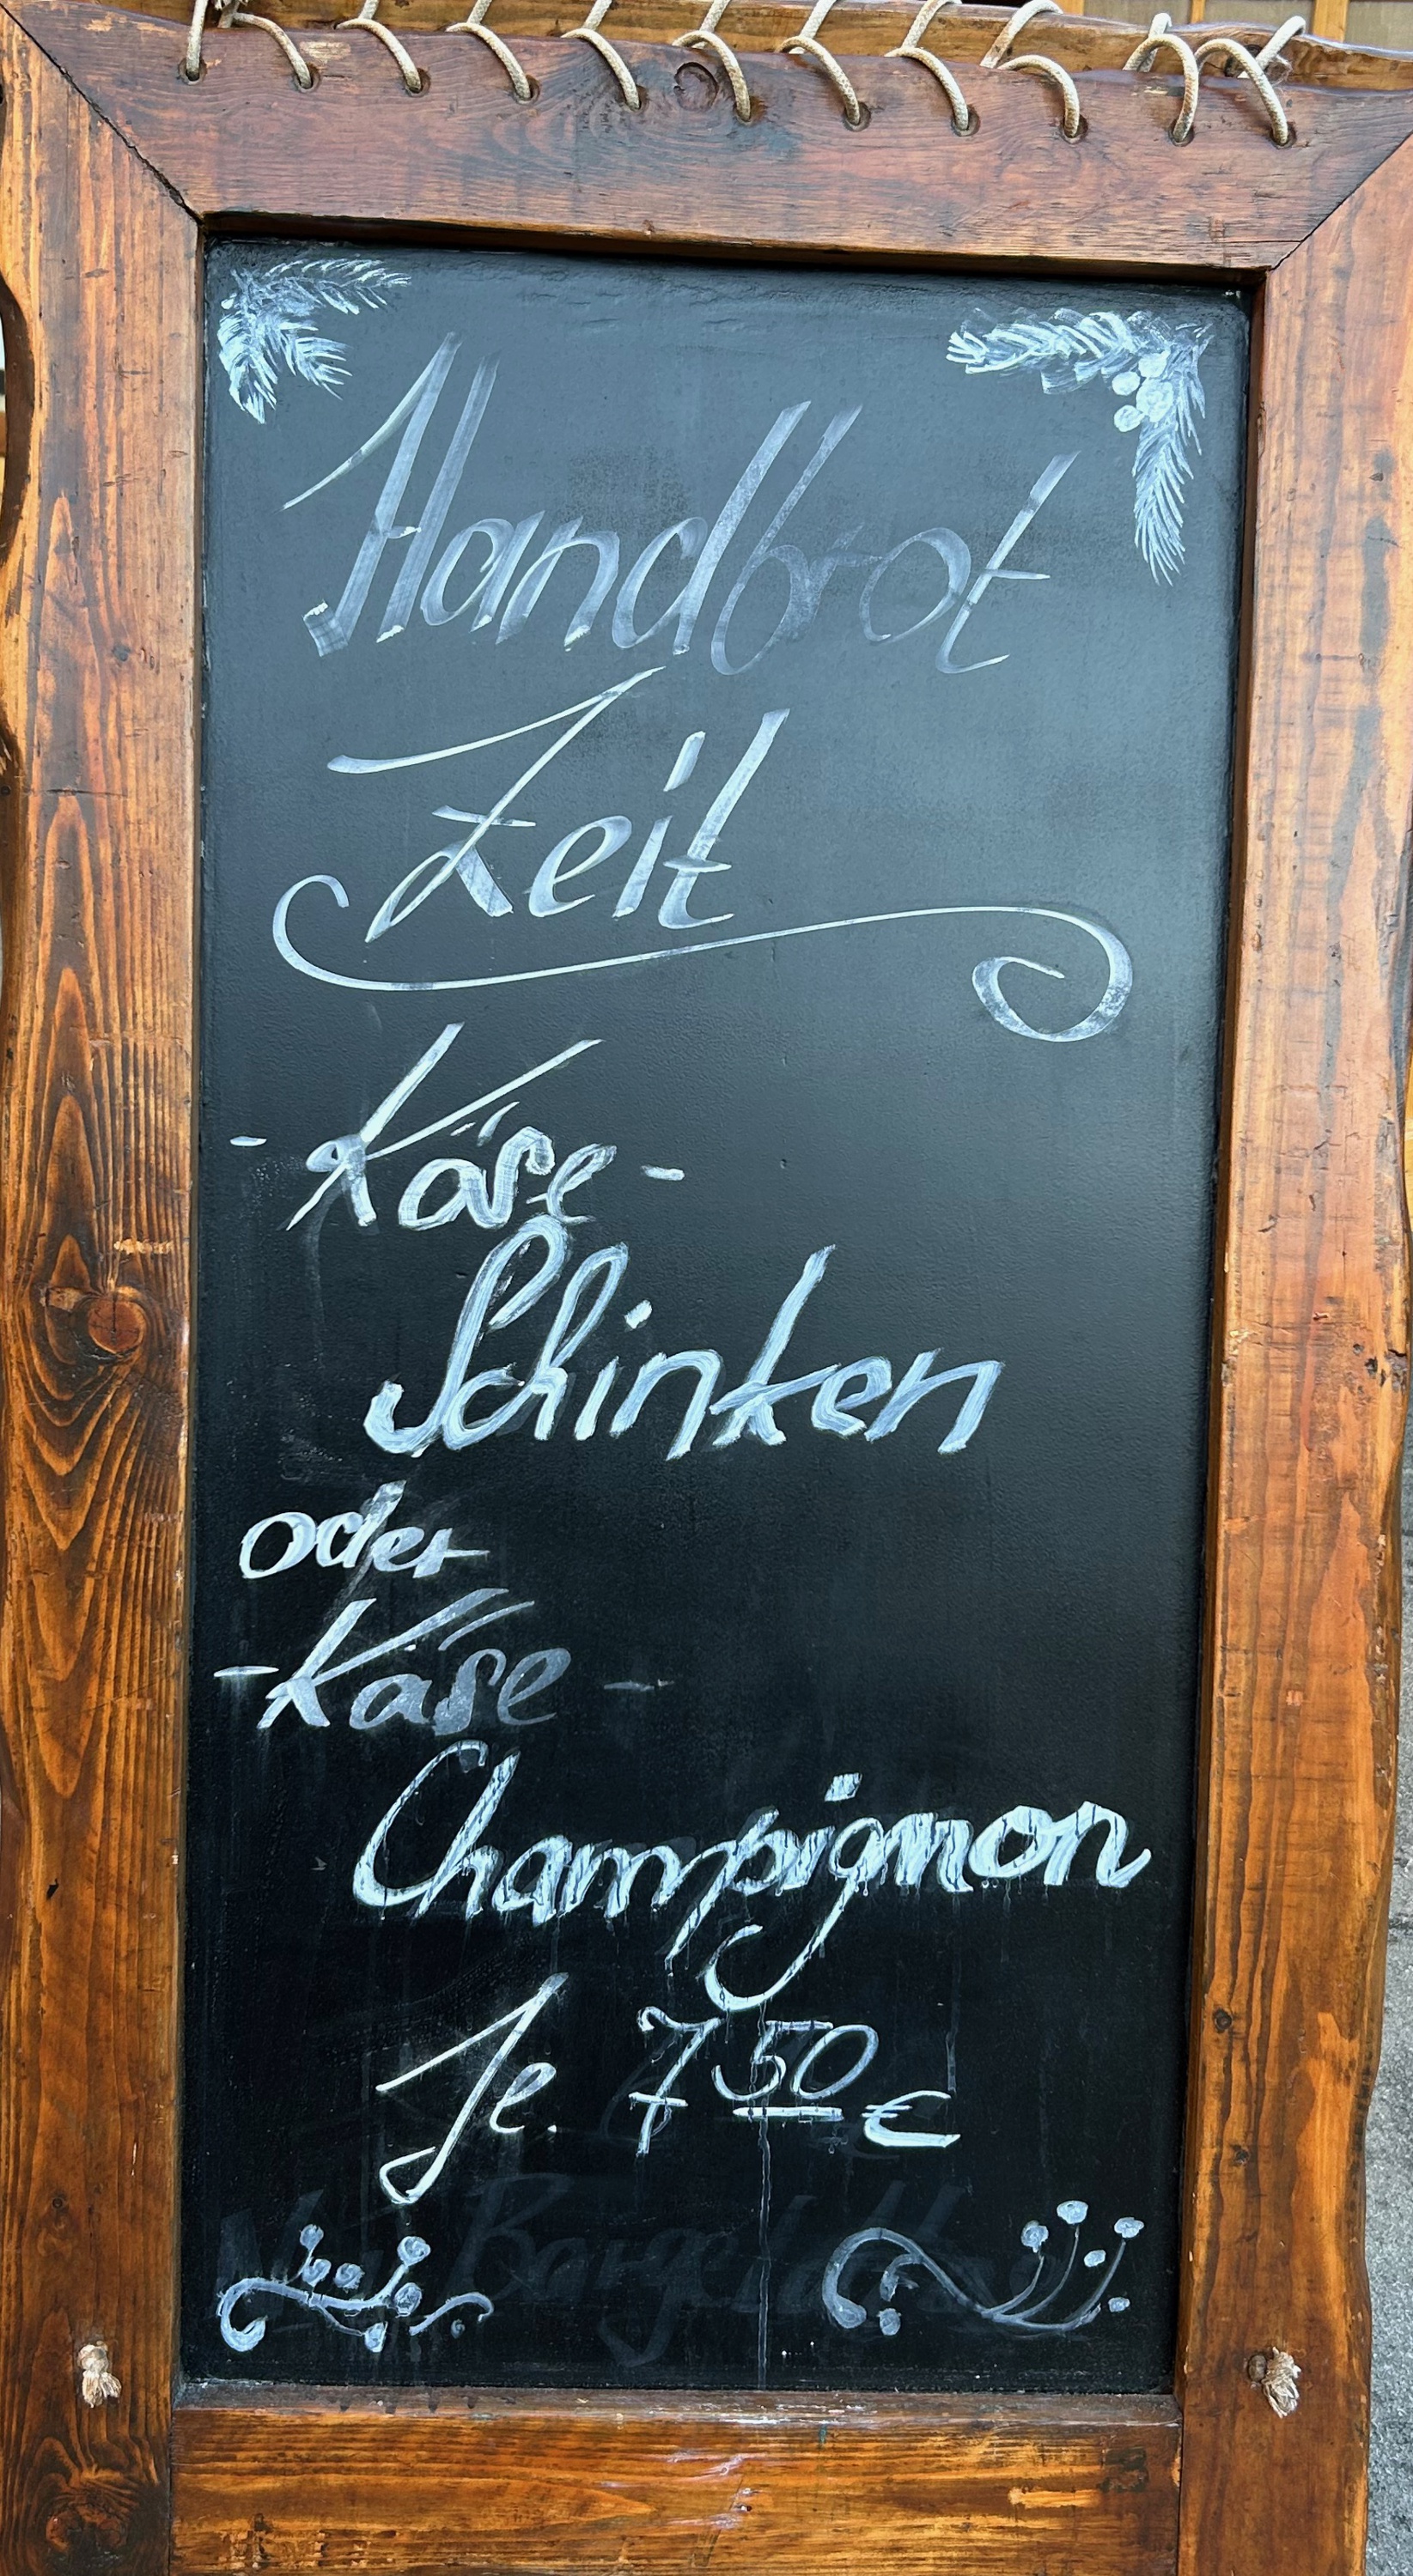 Handbrot
Zeit
- Käse -
Schinken
oder
- Käse -
Champignon
Je. 7 50 €